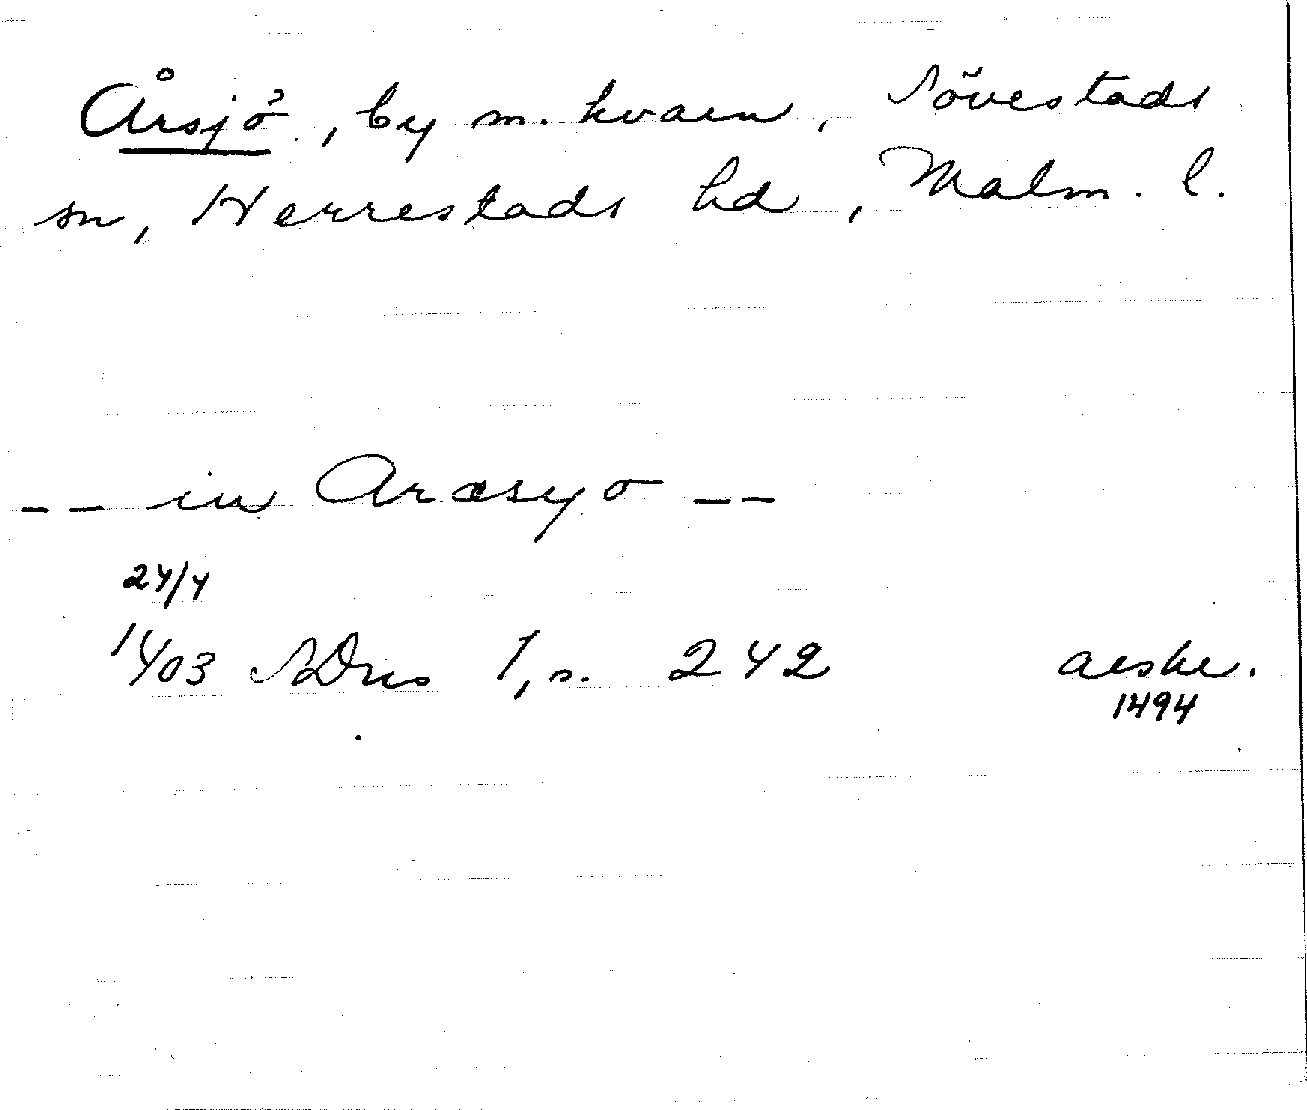 Årsjö, by m. kvarn, Sövestads
sn, Herrestads hd, Malm. l.
-- in Aræsyo --
24/4
1403 SDns 1, s. 242 avskr.
1494